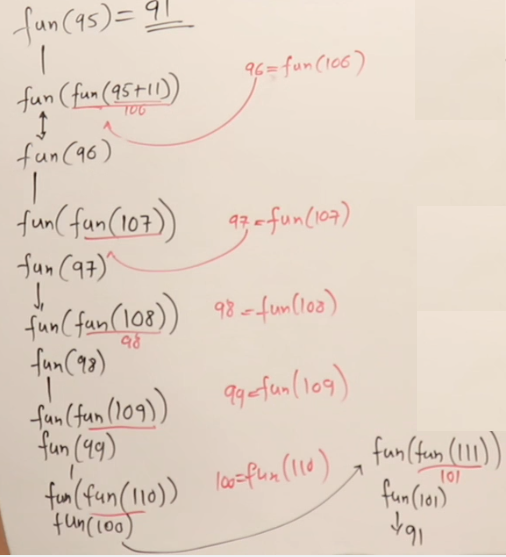 fun(95) = 91
fun(fun(95+11))
106
96=fun(106)
fun(96)
fun(fun(107))
97=fun(107)
fun(97)
fun(fun(108))
98
98=fun(108)
fun(98)
fun(fun(109))
99=fun(109)
fun(99)
fun(fun(110))
100=fun(110)
fun(100)
fun(fun(111))
101
fun(101)
91